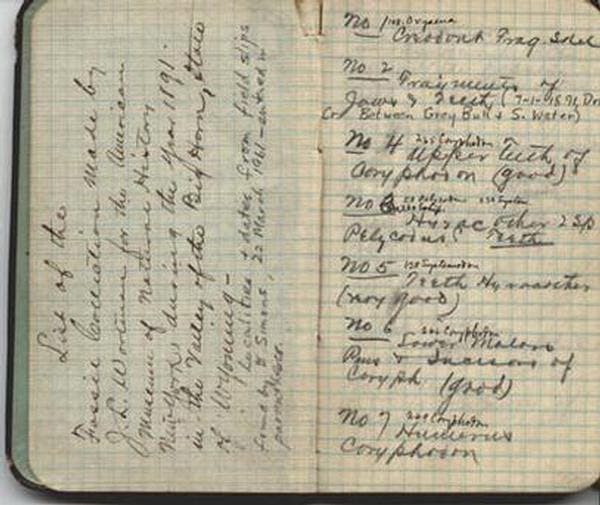 List of the
Fossil Collection made by
J. L. Wortman for the American
Museum of Natural History
New York, during the year 1891.
in the Valley of the Big Horn, State
of Wyoming –
Localities & dates from field slips
found by E Simons, 22 March 1961 – entered in
parentheses.
No 1
Creodont Frag. Skel
No 2 Fragments of
Jaws & Teeth (
Between Grey Bull & S. Water)
No 4
Upper teeth of
Coryphodon (good)
No
Hyrac other 2 sp
Pelycodus Teeth
No 5
Teeth Hyracother
(very good)
No 6
Lower Molars
Pms & Incisors of
Coryph (good)
No 7
Humerus
Coryphodon